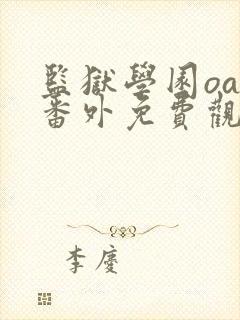 監獄學園oa
番外免費觀
李慶